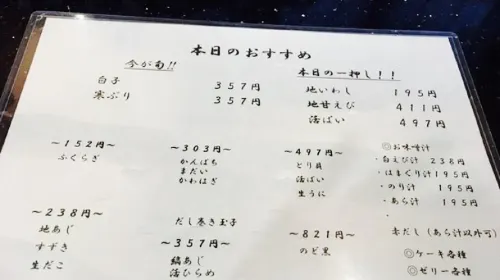 本日のおすすめ
今が旬!!
白子 357円
寒ぶり 357円
本日の一押し!!
地いわし 195円
地甘えび 411円
活ばい 497円
~152円~
ふくらぎ
~303円~
かんぱち
まだい
かわはぎ
~497円~
とり貝
活ばい
生うに
◎お味噌汁
・白えび汁 238円
・はまぐり汁 195円
・のり汁 195円
・あら汁 195円
赤だし(あら汁以外可)
~238円~
地あじ
すずき
生だこ
だし巻き玉子
~357円~
縞あじ
活ひらめ
~821円~
のど黒
◎ケーキ各種
◎ゼリー各種